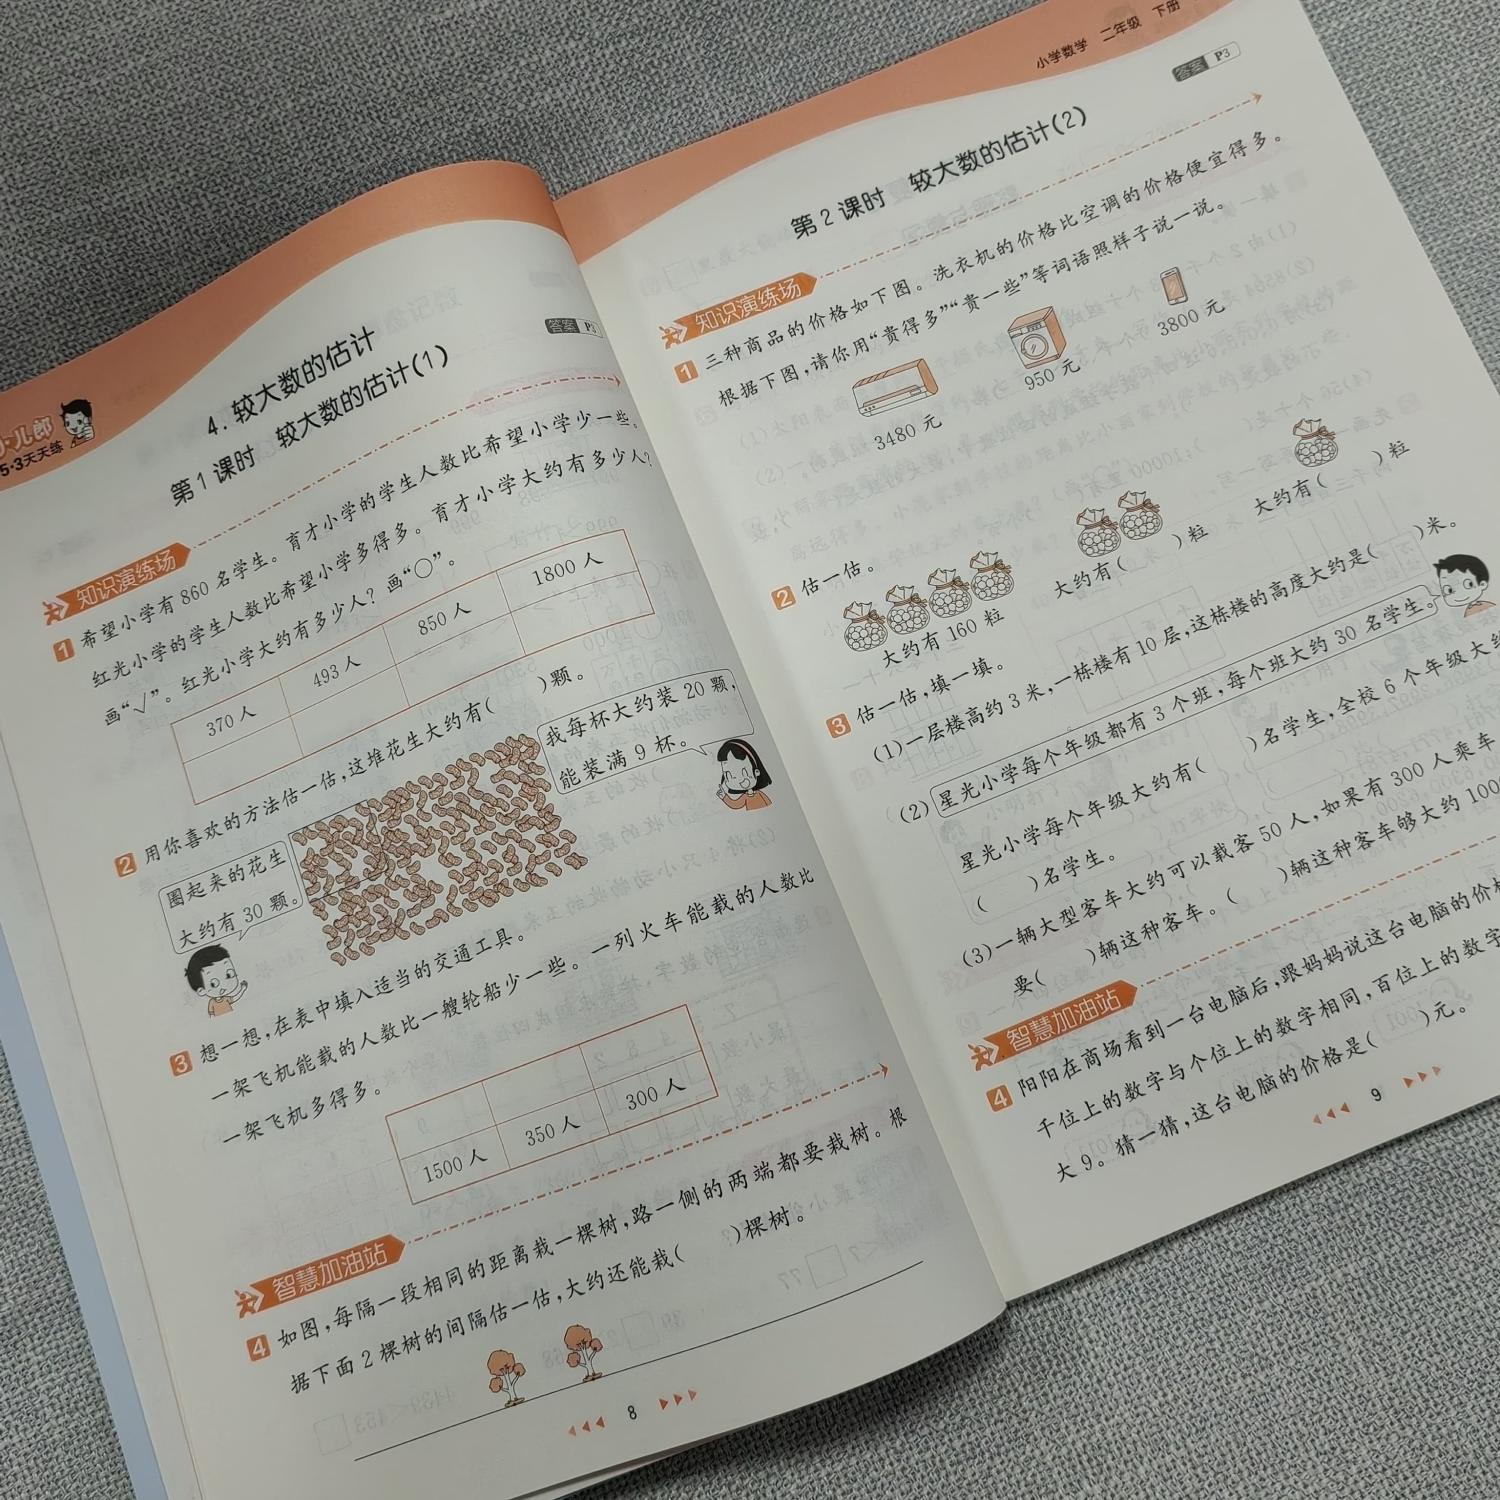 小儿郎
5·3天天练
答案 P3
4. 较大数的估计
第1课时 较大数的估计(1)
知识演练场
1 希望小学有 860 名学生。育才小学的学生人数比希望小学少一些。
红光小学的学生人数比希望小学多得多。育才小学大约有多少人？
画“√”。红光小学大约有多少人？画“○”。
370 人 493 人 850 人 1800 人
2 用你喜欢的方法估一估,这堆花生大约有( )颗。
圈起来的花生
大约有 30 颗。
我每杯大约装 20 颗,
能装满 9 杯。
3 想一想,在表中填入适当的交通工具。
一架飞机能载的人数比一艘轮船少一些。一列火车能载的人数比
一架飞机多得多。
1500 人 350 人 300 人
智慧加油站
4 如图,每隔一段相同的距离栽一棵树,路一侧的两端都要栽树。根
据下面 2 棵树的间隔估一估,大约还能栽( )棵树。
8
小学数学 二年级 下册
答案 P3
第2课时 较大数的估计(2)
知识演练场
1 三种商品的价格如下图。洗衣机的价格比空调的价格便宜得多。
根据下图,请你用“贵得多”“贵一些”等词语照样子说一说。
3480 元
950 元
3800 元
2 估一估。
大约有 160 粒
大约有( )粒
大约有( )粒
3 估一估,填一填。
(1)一层楼高约 3 米,一栋楼有 10 层,这栋楼的高度大约是( )米。
(2) 星光小学每个年级都有 3 个班,每个班大约 30 名学生。
星光小学每个年级大约有( )名学生,全校 6 个年级大约
( )名学生。
(3)一辆大型客车大约可以载客 50 人,如果有 300 人乘车
要( )辆这种客车。( )辆这种客车够大约 100
智慧加油站
4 阳阳在商场看到一台电脑后,跟妈妈说这台电脑的价格
千位上的数字与个位上的数字相同,百位上的数字
大 9。猜一猜,这台电脑的价格是( )元。
9